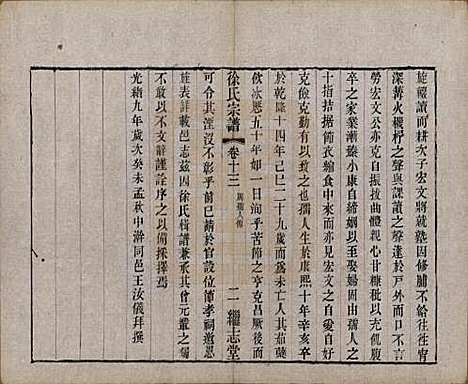 旌襪讀而耕次子宏文將就塾因修脯不給往往
深溝火機杼之聲與課讀之聲達於戸外而日夕
勞宏文公亦克自振拔曲體親心甘糠秕以充飢腹
卒之家業漸臻小康自締姻以至娶婦因由孺人之
十指拮据節衣縮食中來而亦見宏文之自愛自好
克儉克勤有以致之也孺人生於康熙十年辛
於乾隆十四年己巳二十九歲而為未亡人其茹蘗
飲冰懸五十年如一日洵乎苦節之亨克昌厥後而
徐氏宗譜
卷十三
二 繼志堂
可令其湮沒不彰乎前已請於官設位節孝祠邀恩
旌表詳載邑志茲因徐氏輯譜兼承其曾元叢之
不敢以不文辭謹序之以備採擇焉
光緒九年歲次癸未孟秋中澣同邑王汝儀拜撰